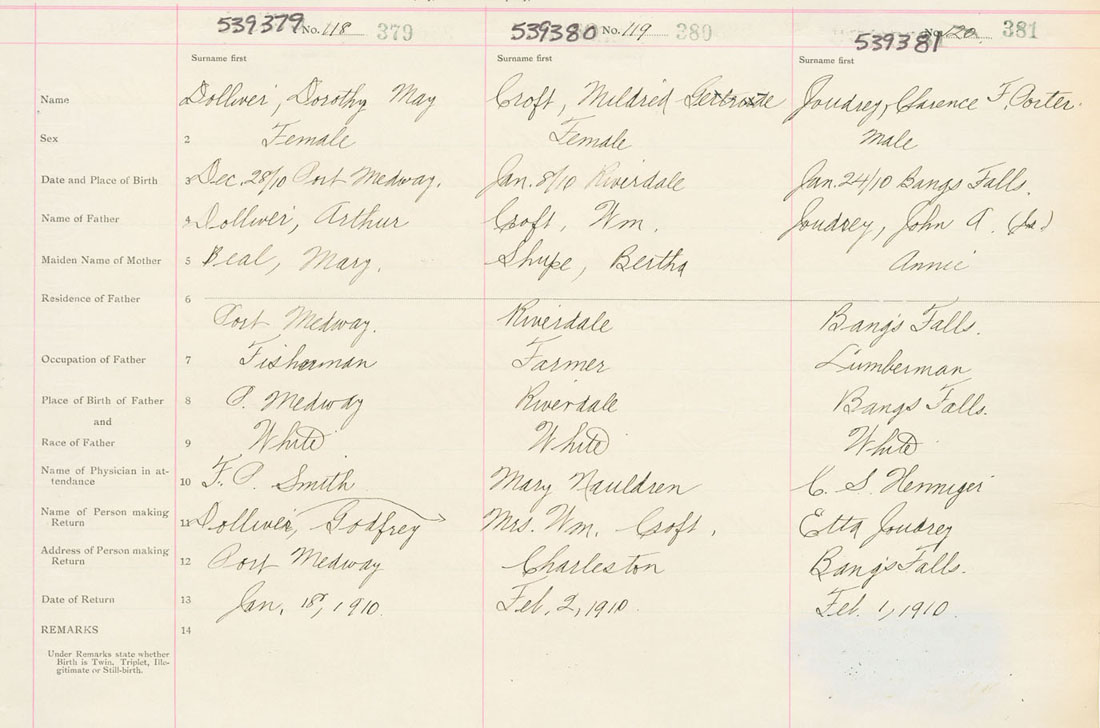 539379 No. 118 379 539380 No. 119 380 539381 No. 120 381
Surname first Surname first Surname first
Name Dolliver, Dorothy May Croft, Mildred Gertrude Joudrey, Clarence F. Porter.
Sex 2 Female Female Male
Date and Place of Birth 3 Dec. 28/10 Port Medway. Jan. 8/10 Riverdale Jan. 24/10 Bangs Falls.
Name of Father 4 Dolliver, Arthur Croft, Wm. Joudrey, John A.
Maiden Name of Mother 5 Beal, Mary. Shupe, Bertha Annie
Residence of Father 6
Port Medway. Riverdale Bangs Falls.
Occupation of Father 7 Fisherman Farmer Lumberman
Place of Birth of Father 8 P. Medway Riverdale Bangs Falls.
and
Race of Father 9 White White White
Name of Physician in at-
tendance 10 F. P. Smith Mary Nauldren C. S. Henniger
Name of Person making
Return 11 Dolliver, Godfrey Mrs. Wm. Croft, Etta Joudrey
Address of Person making
Return 12 Port Medway Charleston Bangs Falls.
Date of Return 13 Jan. 18, 1910 Feb. 2, 1910. Feb. 1, 1910.
REMARKS 14
Under Remarks state whether
Birth is Twin, Triplet, Ille-
gitimate or Still-birth.